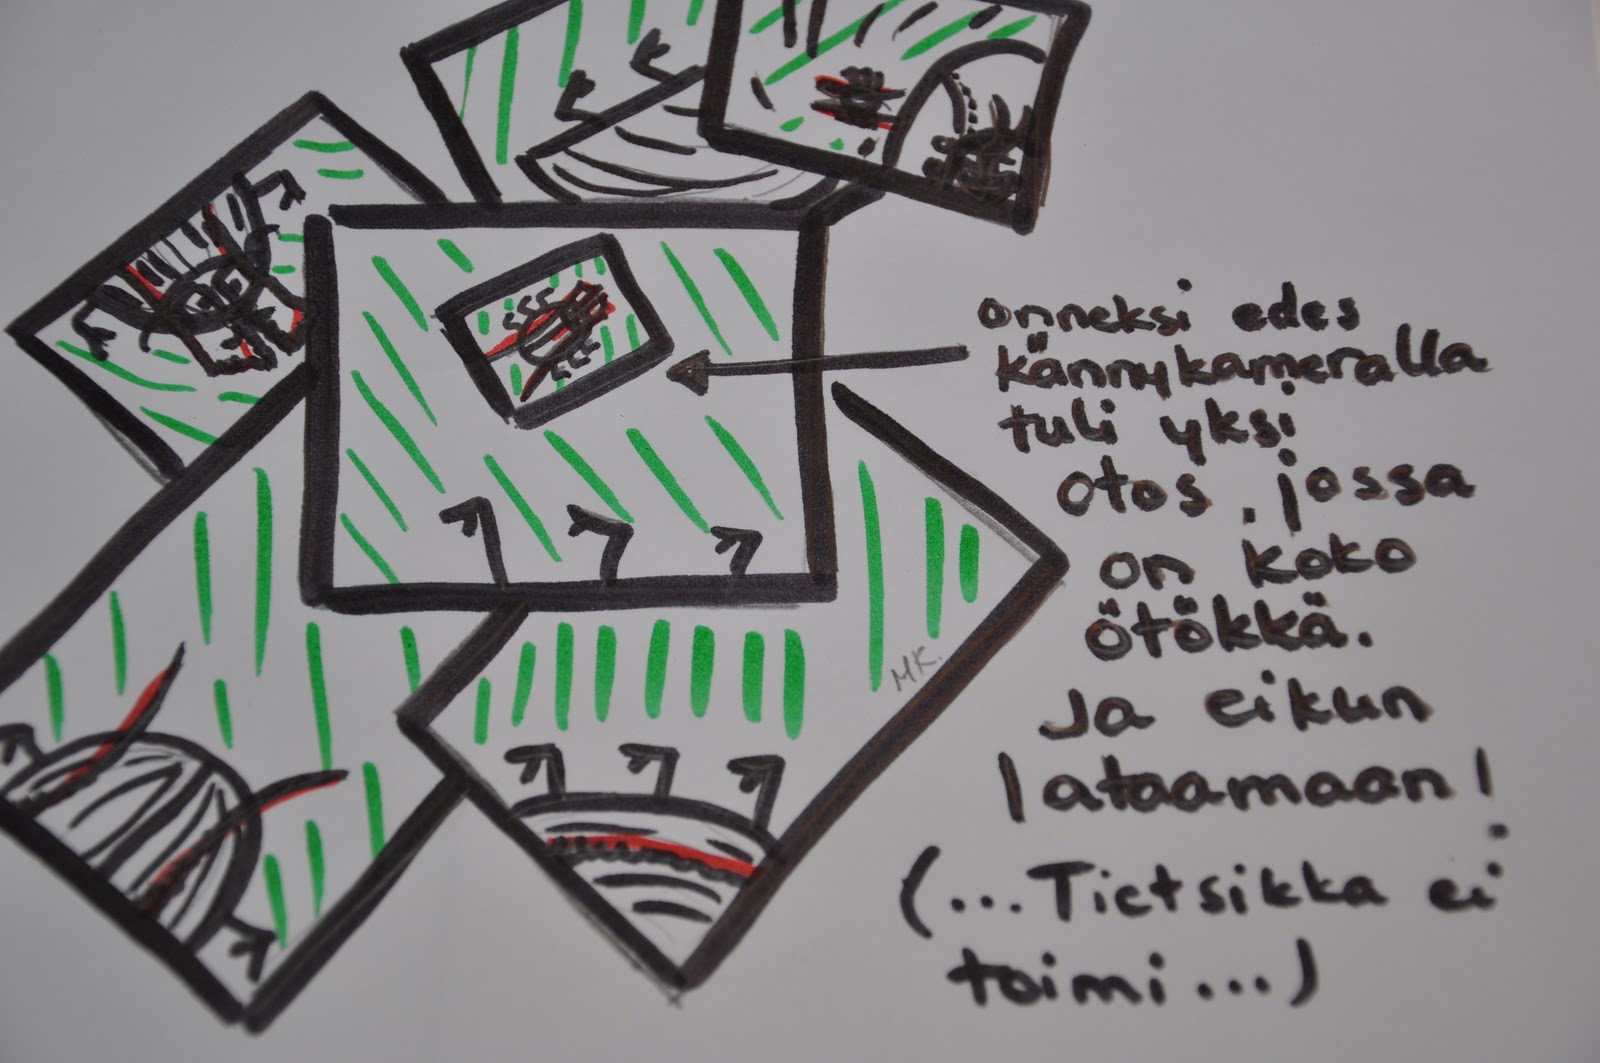 onneksi edes
kännykameralla
tuli yksi
otos, jossa
on koko
ötökkä.
Ja eikun
lataamaan!
(...Tietsikka ei
toimi...)
MK.